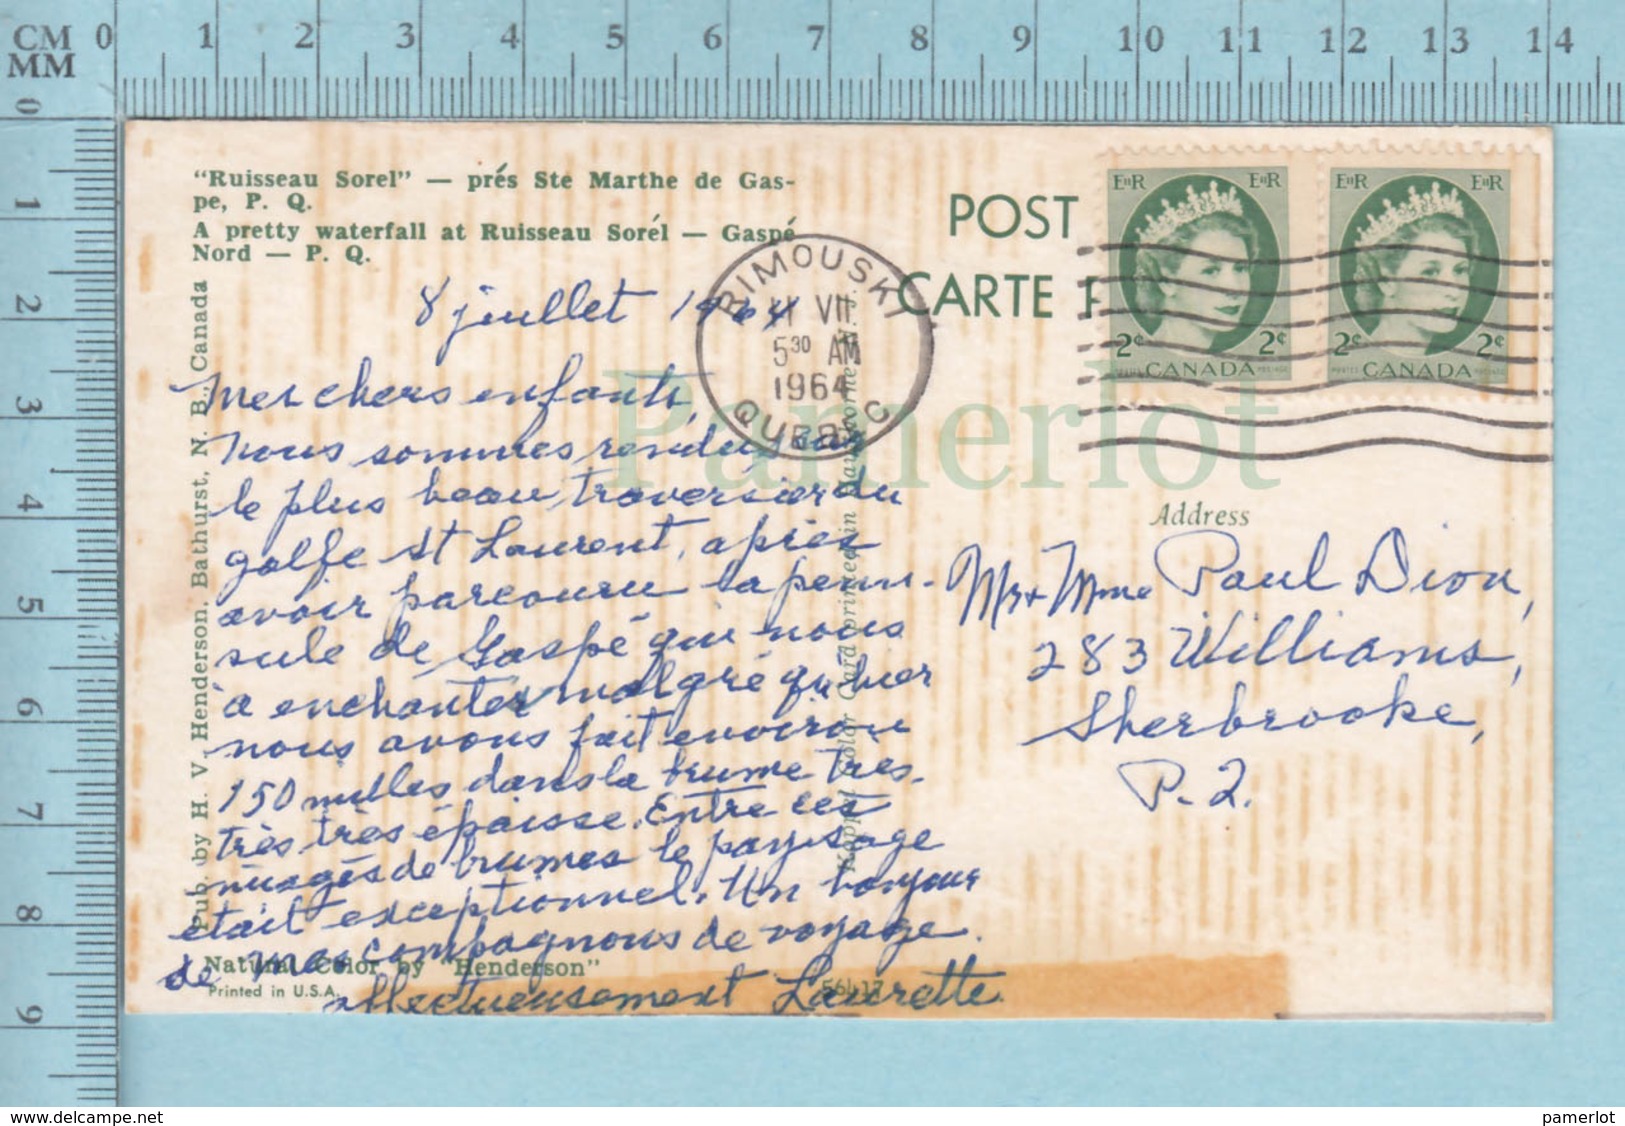 CM 0 1 2 3 4 5 6 7 8 9 10 11 12 13 14
MM
0 1 2 3 4 5 6 7 8 9
"Ruisseau Sorel" — prés Ste Marthe de Gas-
pe, P. Q.
A pretty waterfall at Ruisseau Sorél — Gaspé
Nord — P. Q.
8 juillet 1964
Mes chers enfants,
Nous sommes rendus sur
le plus beau traversier du
golfe St Laurent, après
avoir parcouru la penin-
sule de Gaspé qui nous
a enchantés malgré qu'hier
nous avons fait environ
150 milles dans la brume très
très très épaisse. Entre ces
nuages de brumes le paysage
était exceptionnel. Un bonjour
de mes compagnons de voyage.
affectueusement Laurette
Pub. by H. V. Henderson, Bathurst, N. B., Canada
Natural Color by "Henderson"
Printed in U.S.A.
56417
RIMOUSKI
VII
5 30 AM
1964
QUEBEC
POST
CARTE P
EIIR EIIR
2¢ 2¢
CANADA
POSTES POSTAGE
EIIR EIIR
2¢ 2¢
CANADA
POSTES POSTAGE
Pamerlot
Address
Mr + Mme Paul Dion,
283 Williams,
Sherbrooke,
P. Q.
www.delcampe.net
pamerlot